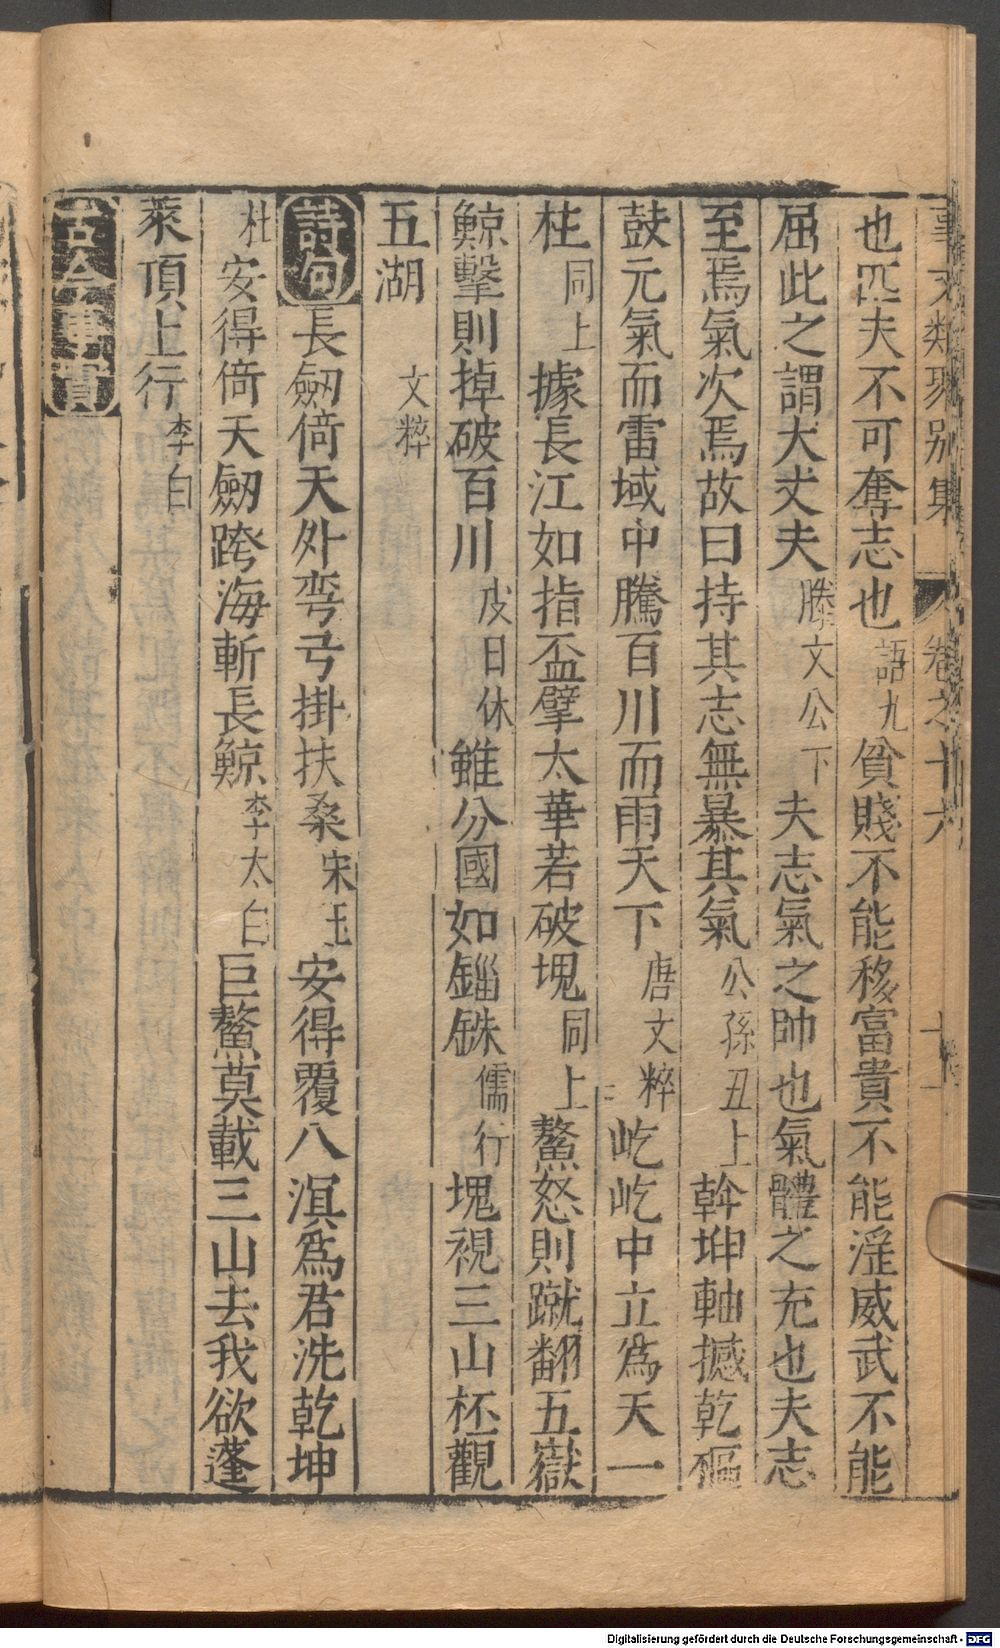 事文類聚别集 卷之十六
也匹夫不可奪志也語九貧賤不能移富貴不能淫威武不能
屈此之謂大丈夫滕文公下夫志氣之帥也氣體之充也夫志
至焉氣次焉故曰持其志無暴其氣公孫丑上斡坤軸撼乾樞
鼓元氣而雷域中騰百川而雨天下唐文粹屹屹中立爲天一
柱同上據長江如指盃擘太華若破塊同上鰲怒則蹴翻五嶽
鯨擊則掉破百川皮日休雖分國如錙銖儒行塊視三山杯觀
五湖文粹
詩句長劒倚天外弯弓掛扶桑宋玉安得覆八溟爲君洗乾坤
杜安得倚天劒跨海斬長鯨李太白巨鰲莫載三山去我欲蓬
萊頂上行李白
古今事實
Digitalisierung gefördert durch die Deutsche Forschungsgemeinschaft - DFG